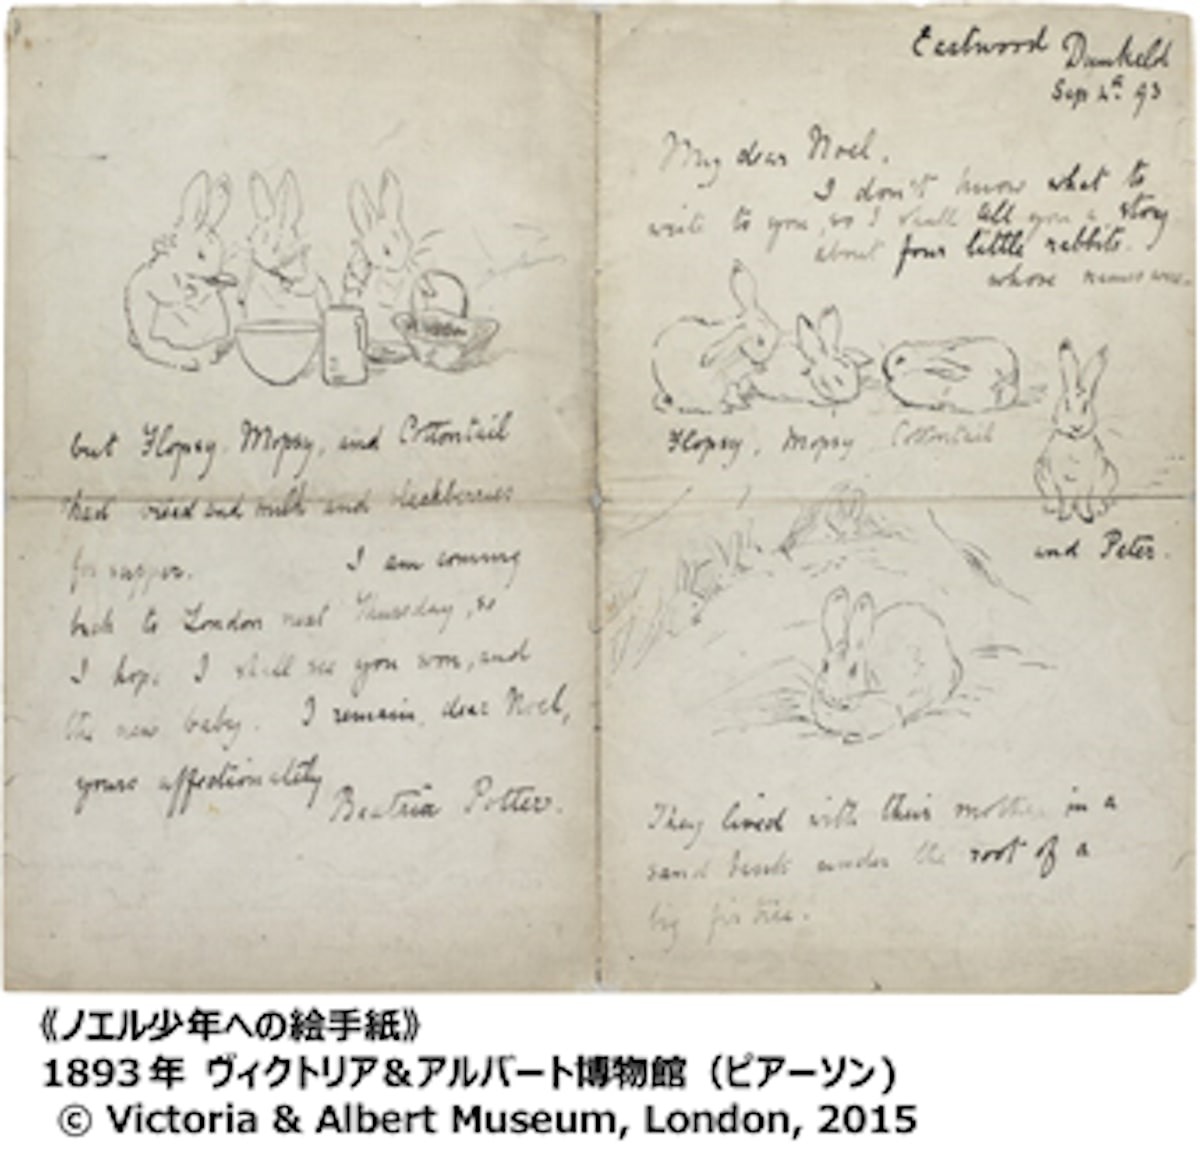 Eastwood Dunkeld
Sep 4th 93
My dear Noel,
I don't know what to
write to you, so I shall tell you a story
about four little rabbits.
whose names were
Flopsy, Mopsy Cottontail
and Peter.
They lived with their mother in a
sand bank under the root of a
big fir tree.
but Flopsy, Mopsy, and Cottontail
had bread and milk and blackberries
for supper.
I am coming
back to London next Thursday, so
I hope I shall see you soon, and
the new baby. I remain, dear Noel,
yours affectionately
Beatrix Potter.
《ノエル少年への絵手紙》
1893年 ヴィクトリア&アルバート博物館 (ピアーソン)
© Victoria & Albert Museum, London, 2015